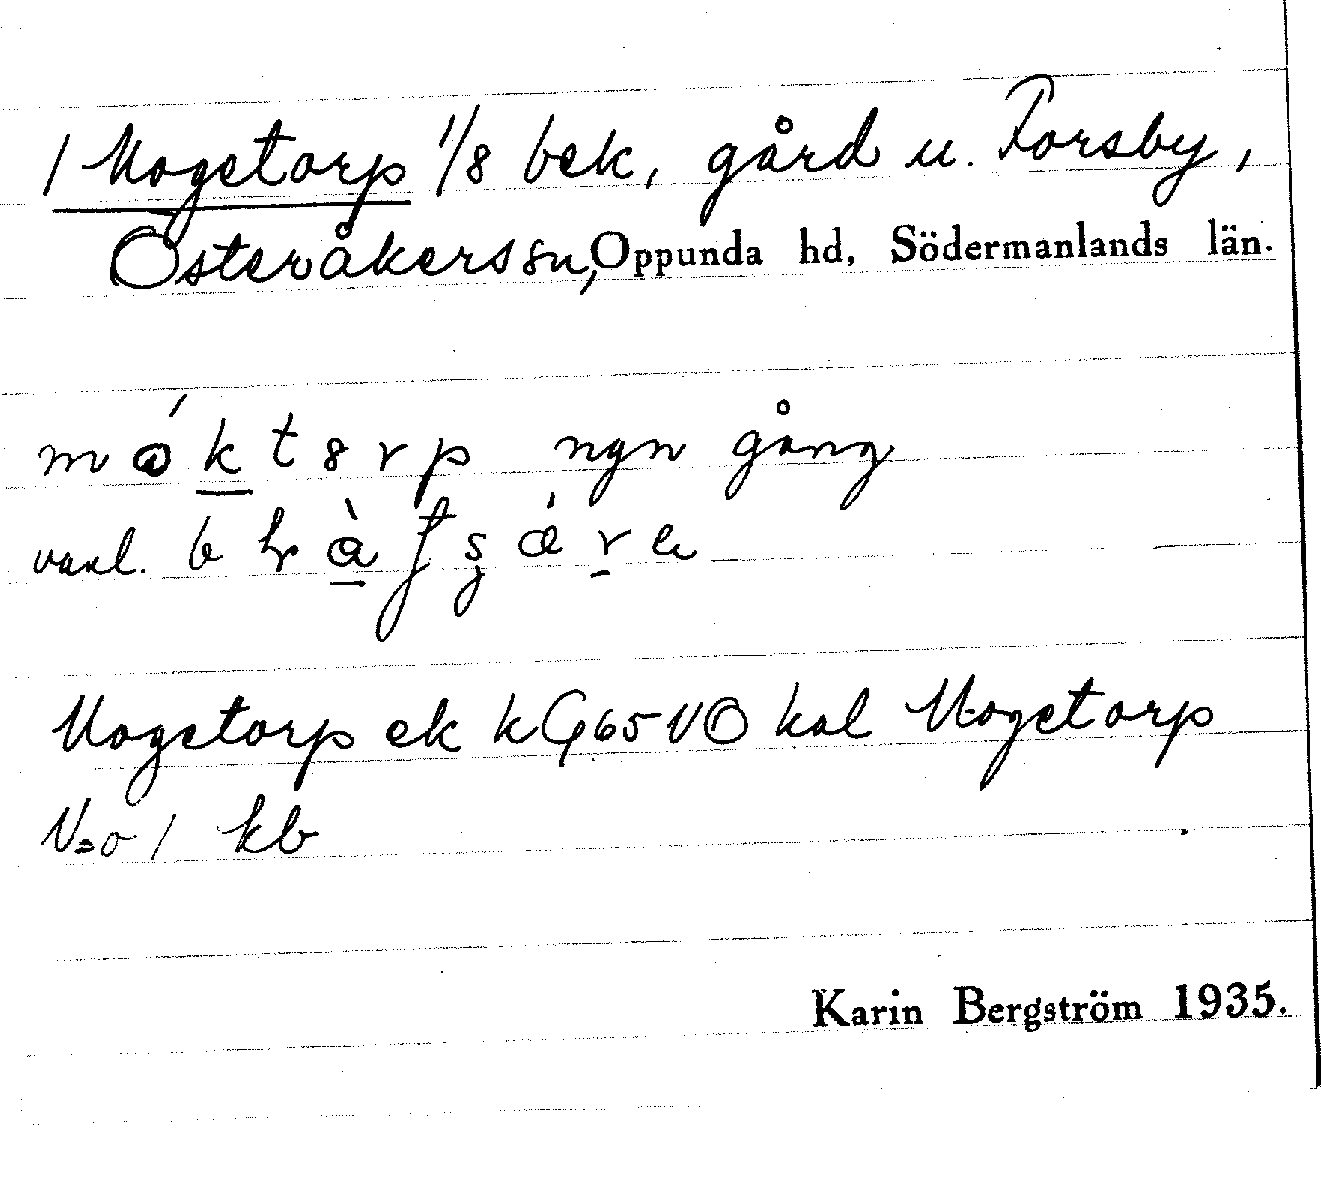 1 Mogetorp 1/8 bek, gård u. Forsby,
Österåkers sn, Oppunda hd, Södermanlands län.
móktorp ngn gång
vanl.
Mogetorp ek k G65 NO kal Mogetorp
kb
Karin Bergström 1935.